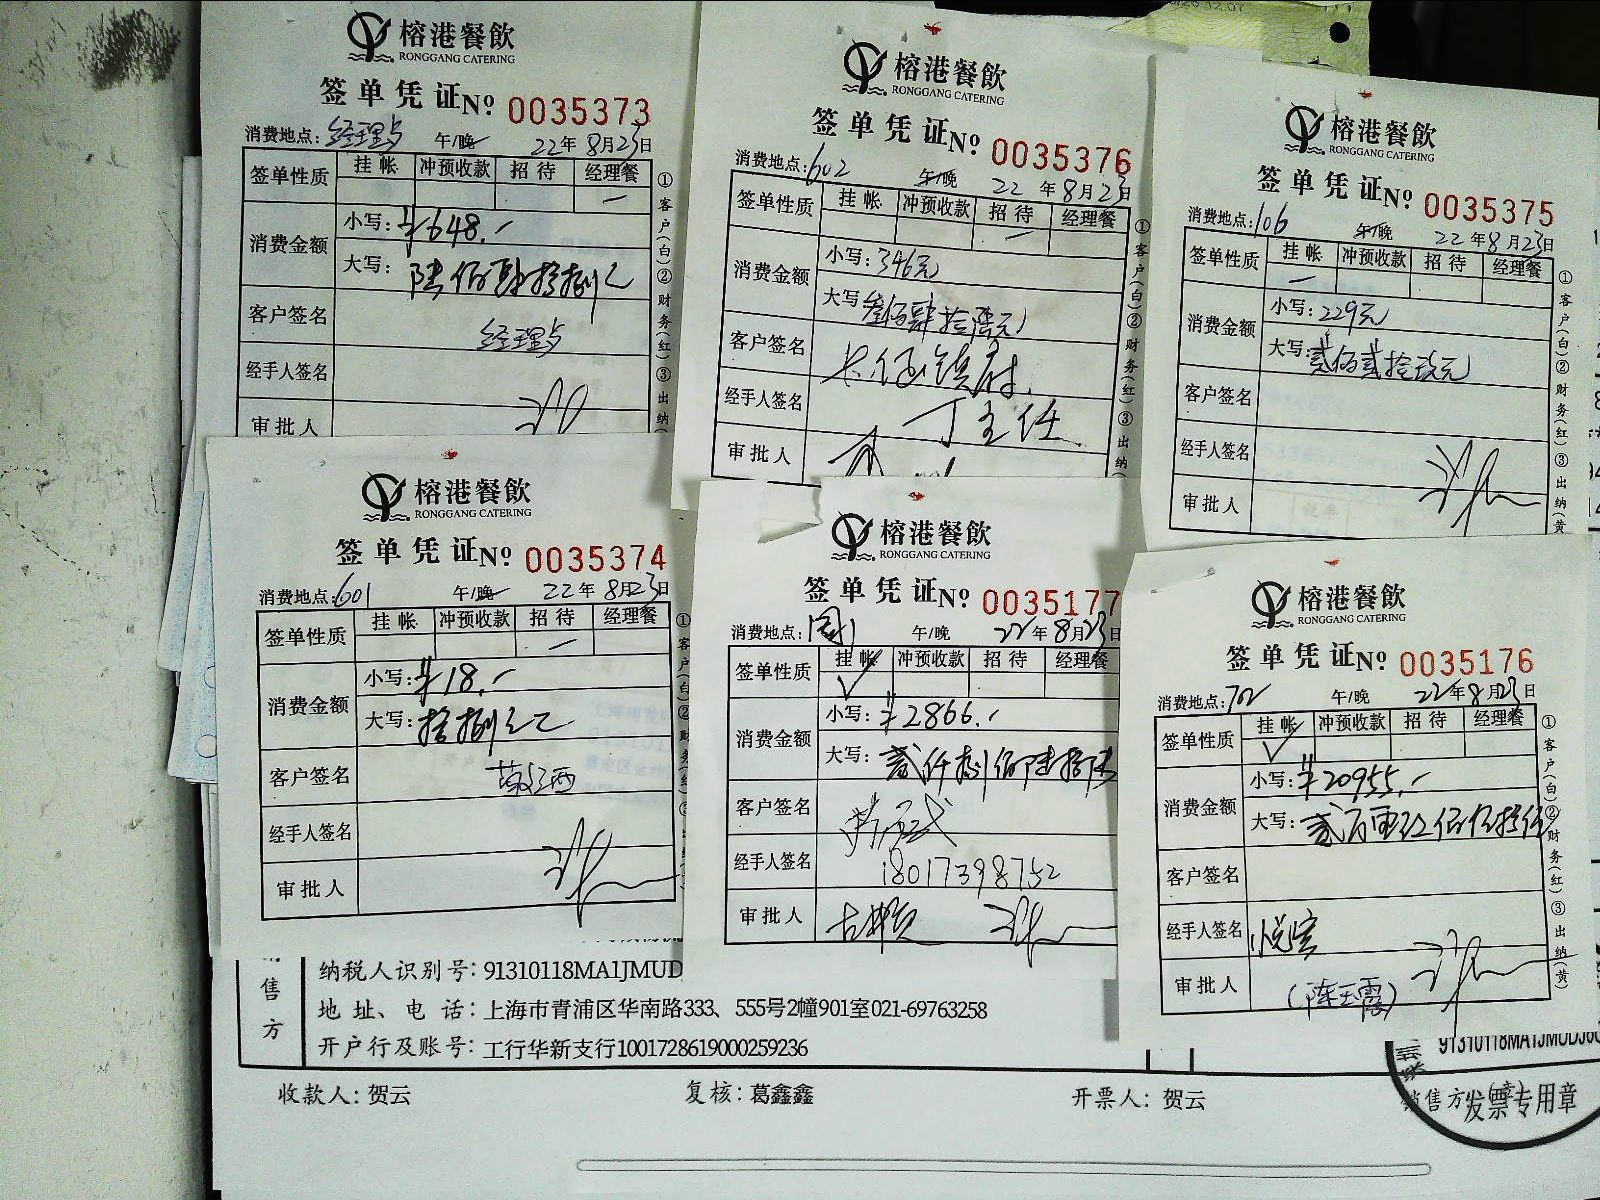 榕港餐飲
RONGGANG CATERING
签单凭证No 0035373
消费地点:经理点 午/晚 22年8月23日
签单性质 挂帐 冲预收款 招待 经理餐
消费金额 小写:¥648.-
大写:陆佰肆拾捌元
客户签名 经理点
经手人签名
审批人
①客户(白)②财务(红)③出纳
榕港餐飲
RONGGANG CATERING
签单凭证No 0035376
消费地点:602 午/晚 22年8月23日
签单性质 挂帐 冲预收款 招待 经理餐
消费金额 小写:346元
大写 叁佰肆拾陆元
客户签名
经手人签名 丁主任
审批人
①客户(白)②财务(红)③出纳
榕港餐飲
RONGGANG CATERING
签单凭证No 0035375
消费地点:106 午/晚 22年8月23日
签单性质 挂帐 冲预收款 招待 经理餐
消费金额 小写:229元
大写:贰佰贰拾玖元
客户签名
经手人签名
审批人
①客户(白)②财务(红)③出纳(黄
榕港餐飲
RONGGANG CATERING
签单凭证No 0035374
消费地点:601 午/晚 22年8月23日
签单性质 挂帐 冲预收款 招待 经理餐
消费金额 小写:¥18.-
大写:拾捌元
客户签名
经手人签名
审批人
榕港餐飲
RONGGANG CATERING
签单凭证No 0035177
消费地点: 午/晚 22年8月23日
签单性质 挂帐 冲预收款 招待 经理餐
消费金额 小写:¥2866.-
大写:贰仟捌佰陆拾陆
客户签名
经手人签名 18017398752
审批人
榕港餐飲
RONGGANG CATERING
签单凭证No 0035176
消费地点:702 午/晚 22年8月23日
签单性质 挂帐 冲预收款 招待 经理餐
消费金额 小写:¥20955.-
大写:贰万零玖佰伍拾伍
客户签名
经手人签名
审批人 (陈玉霞)
①客户(白)②财务(红)③出纳(黄)
销售方
纳税人识别号:91310118MA1JMUD
地址、电话:上海市青浦区华南路333、555号2幢901室021-69763258
开户行及账号:工行华新支行1001728619000259236
收款人:贺云 复核:葛鑫鑫 开票人:贺云 销售方:(章)
发票专用章